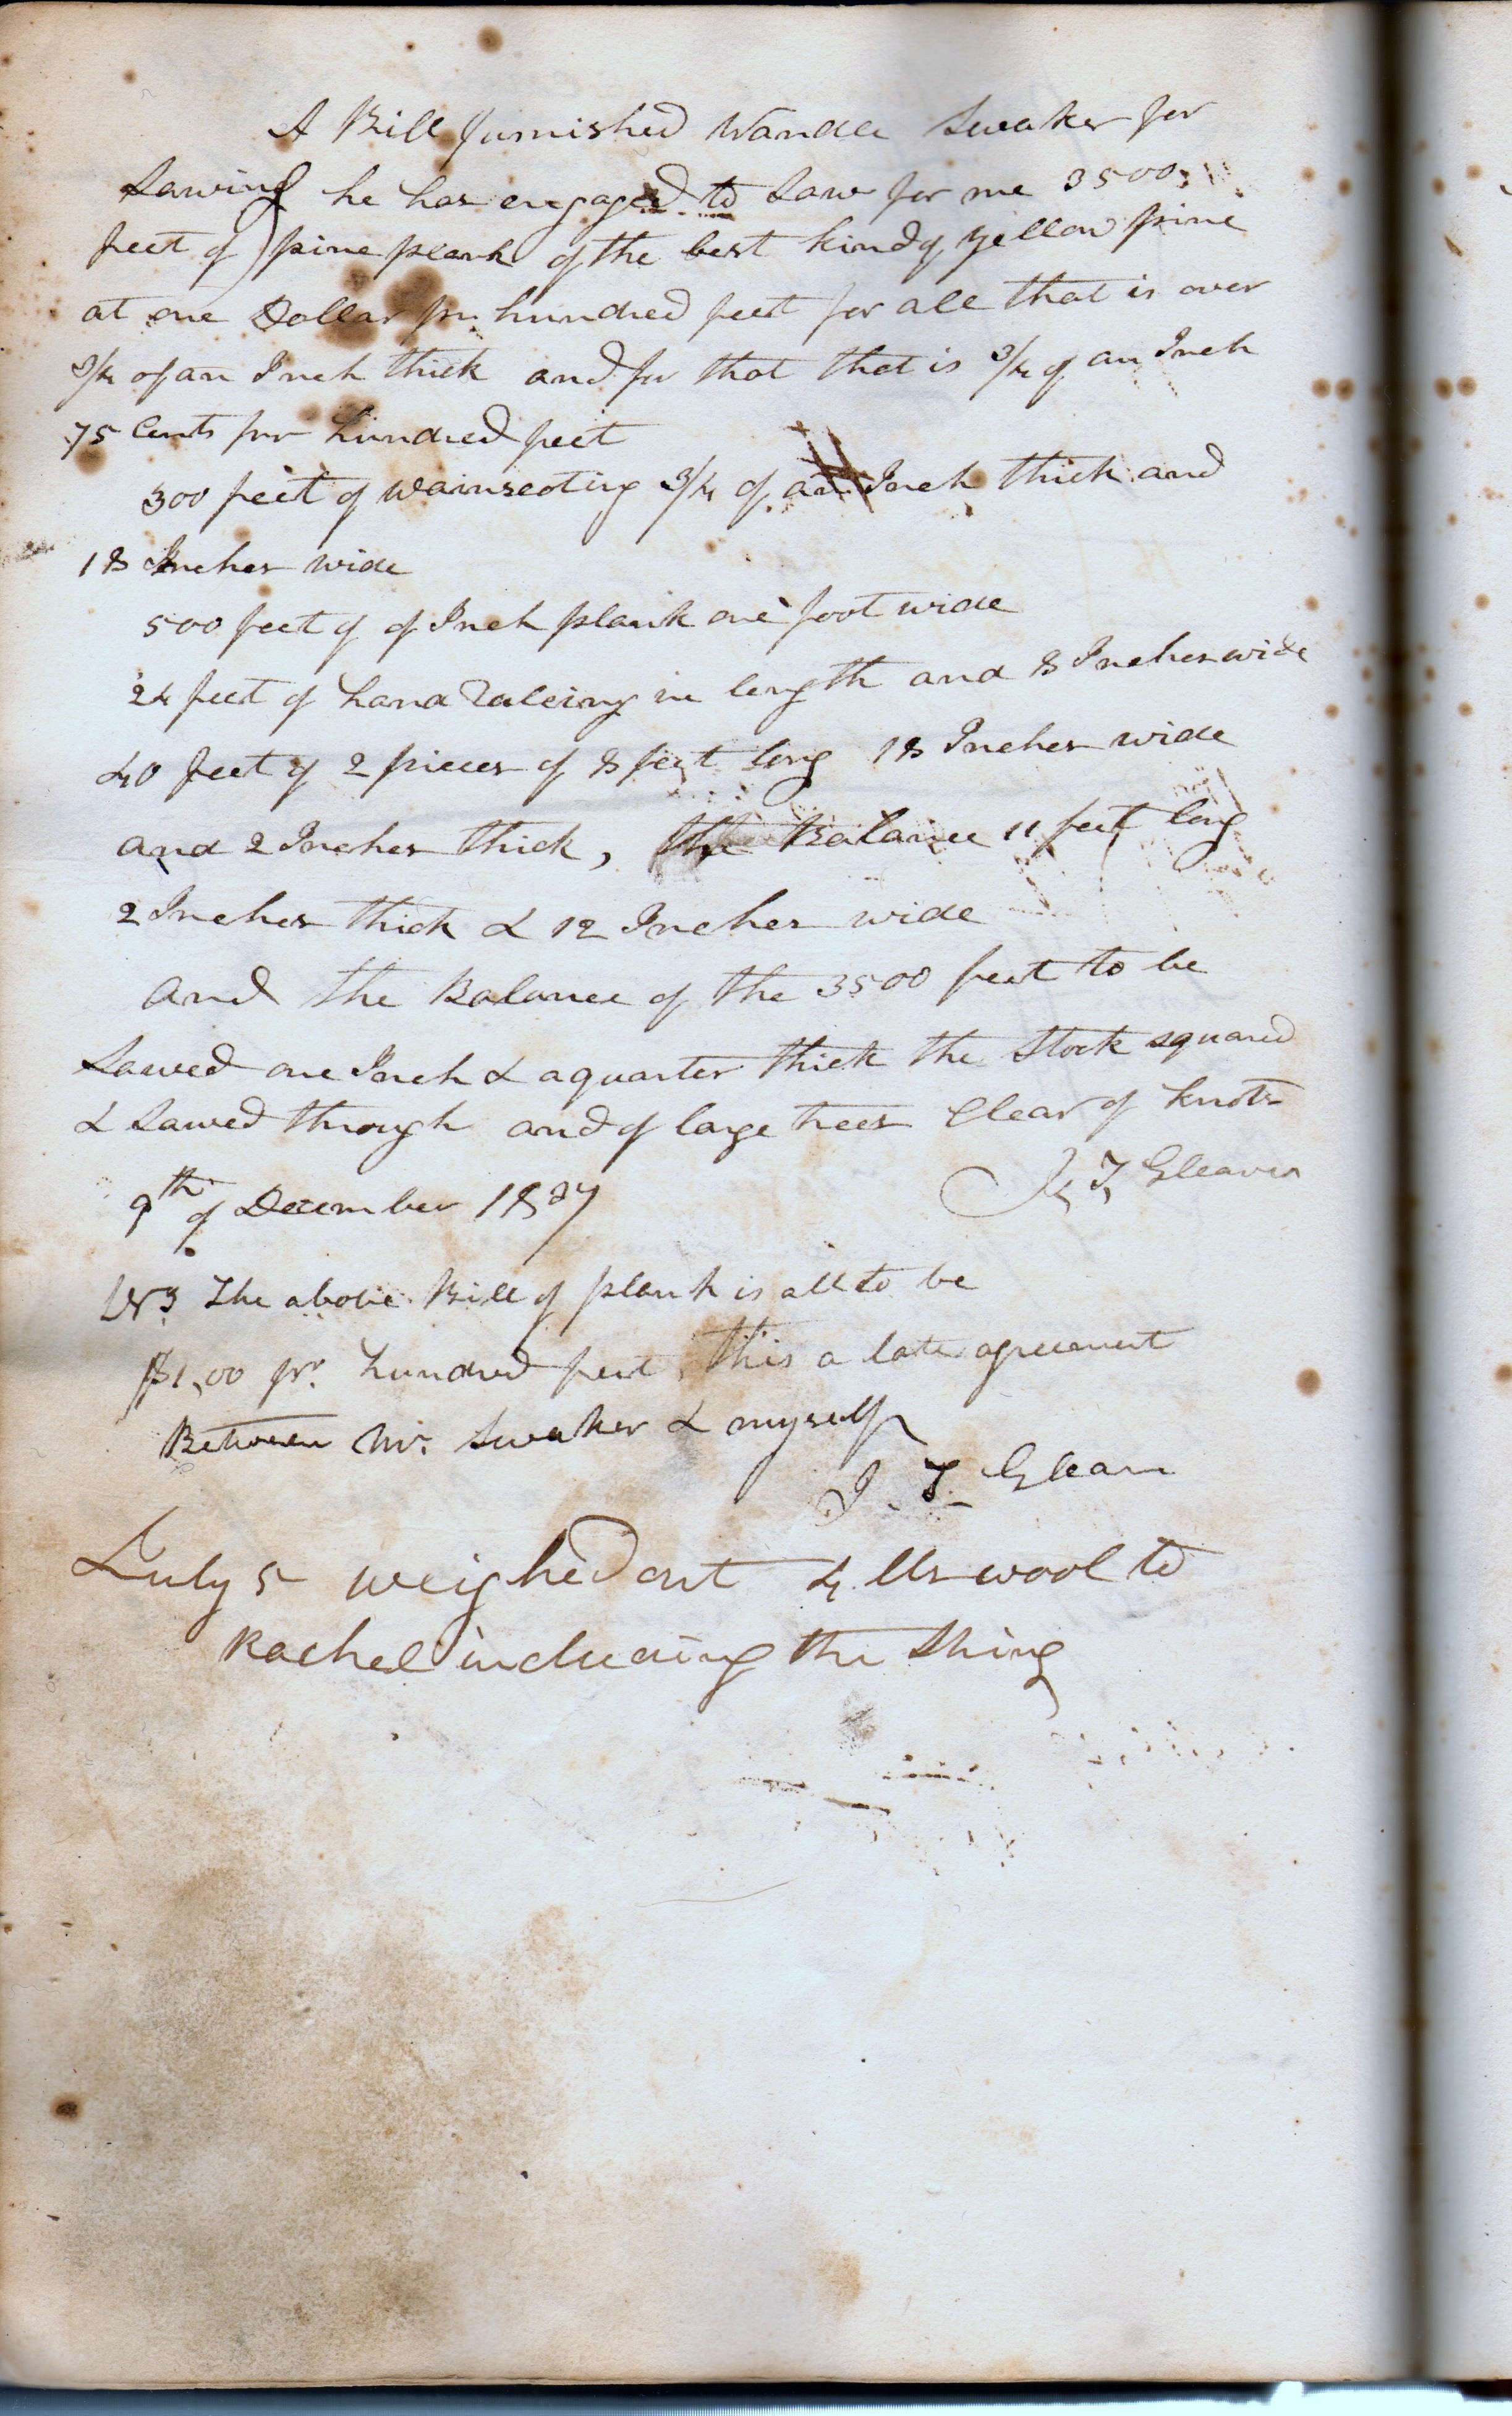 A Bill furnished Wandle Swaker for
Sawing he has engaged to Saw for me 3500
feet of pine plank of the best kind of yellow pine
at one Dollar pr. hundred feet for all that is over
3/4 of an Inch thick and for that that is 3/4 of an Inch
75 Cents per hundred feet
300 feet of wainscoting 3/4 of an Inch thick and
18 Inches wide
500 feet of of Inch plank one foot wide
24 feet of hand Raleing in length and 8 Inches wide
40 feet of 2 pieces of 8 feet long 18 Inches wide
and 2 Inches thick, the Balance 11 feet long
2 Inches thick & 12 Inches wide
and the Balance of the 3500 feet to be
Sawed one Inch & a quarter thick the Stock squared
& Sawed through and of large trees Clear of knots
T, Gleaves
9th of December 1837
The above Bill of plank is all to be
$1,00 pr. hundred feet, this a late agreement
Between Mr. Swaker & myself
J. T. Gleave
July 5 weighed out 4 lbs wool to
Rachel including the String